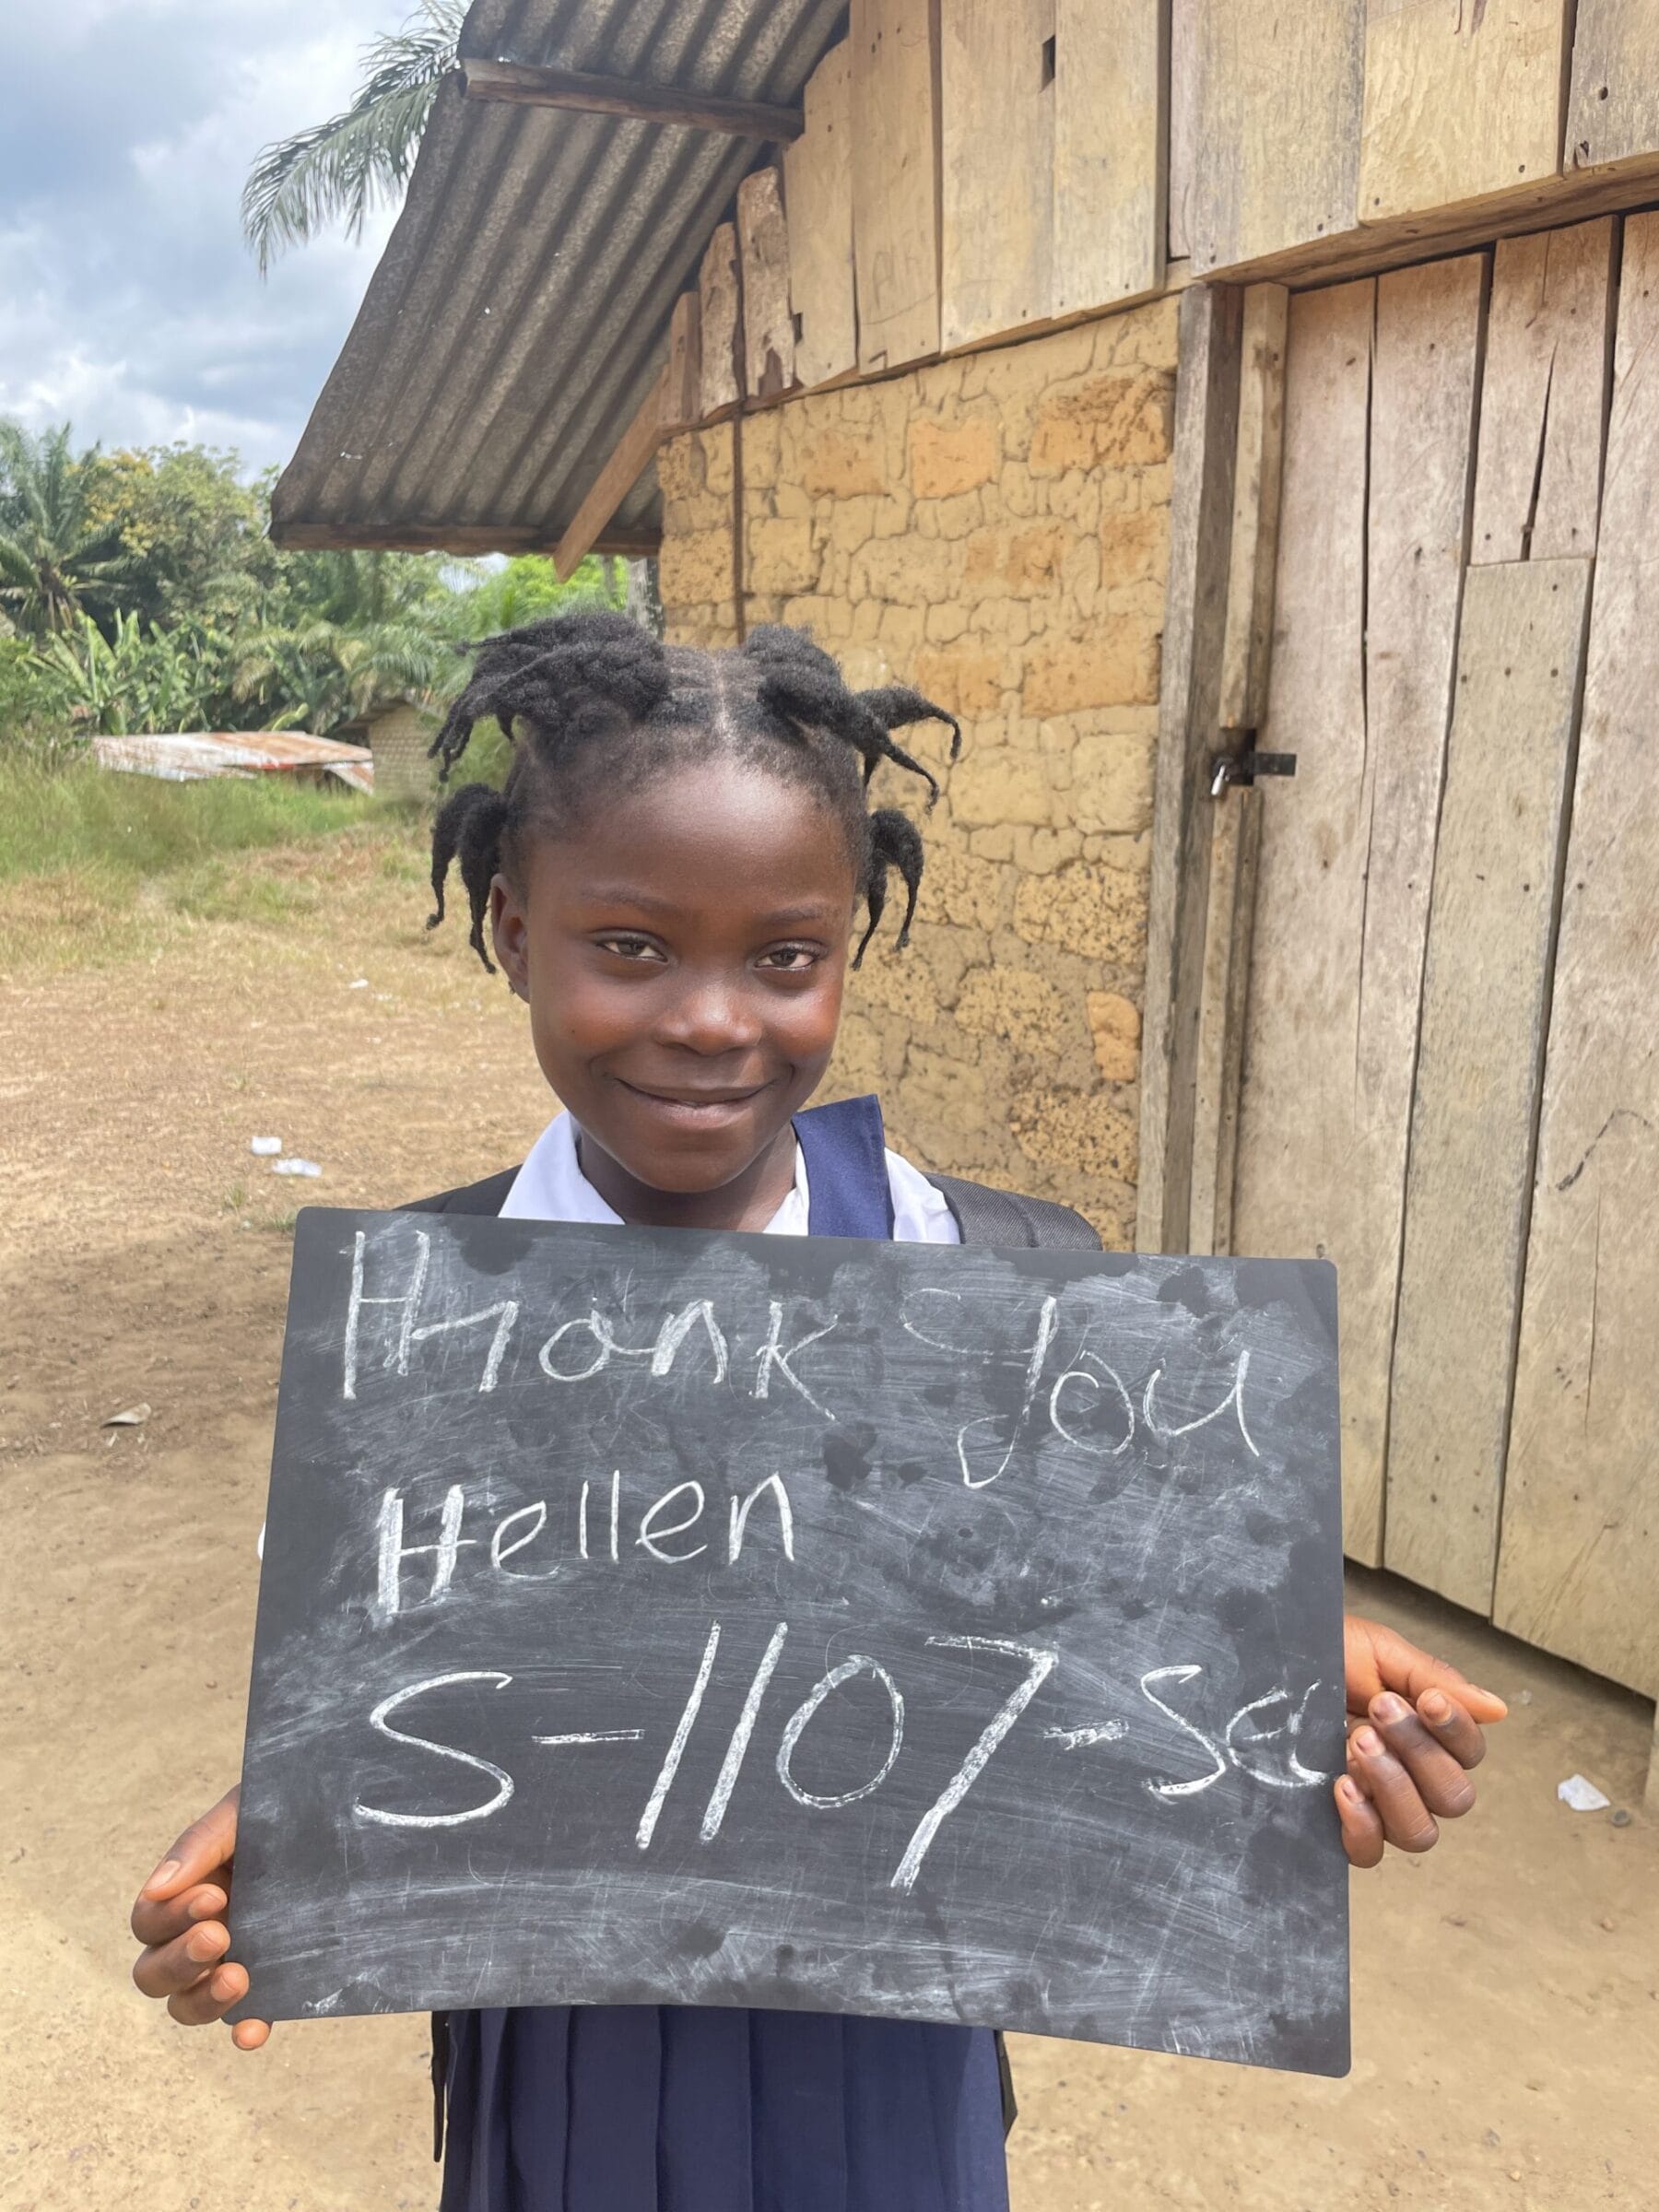 Thank You
Hellen
S-1107-Sec